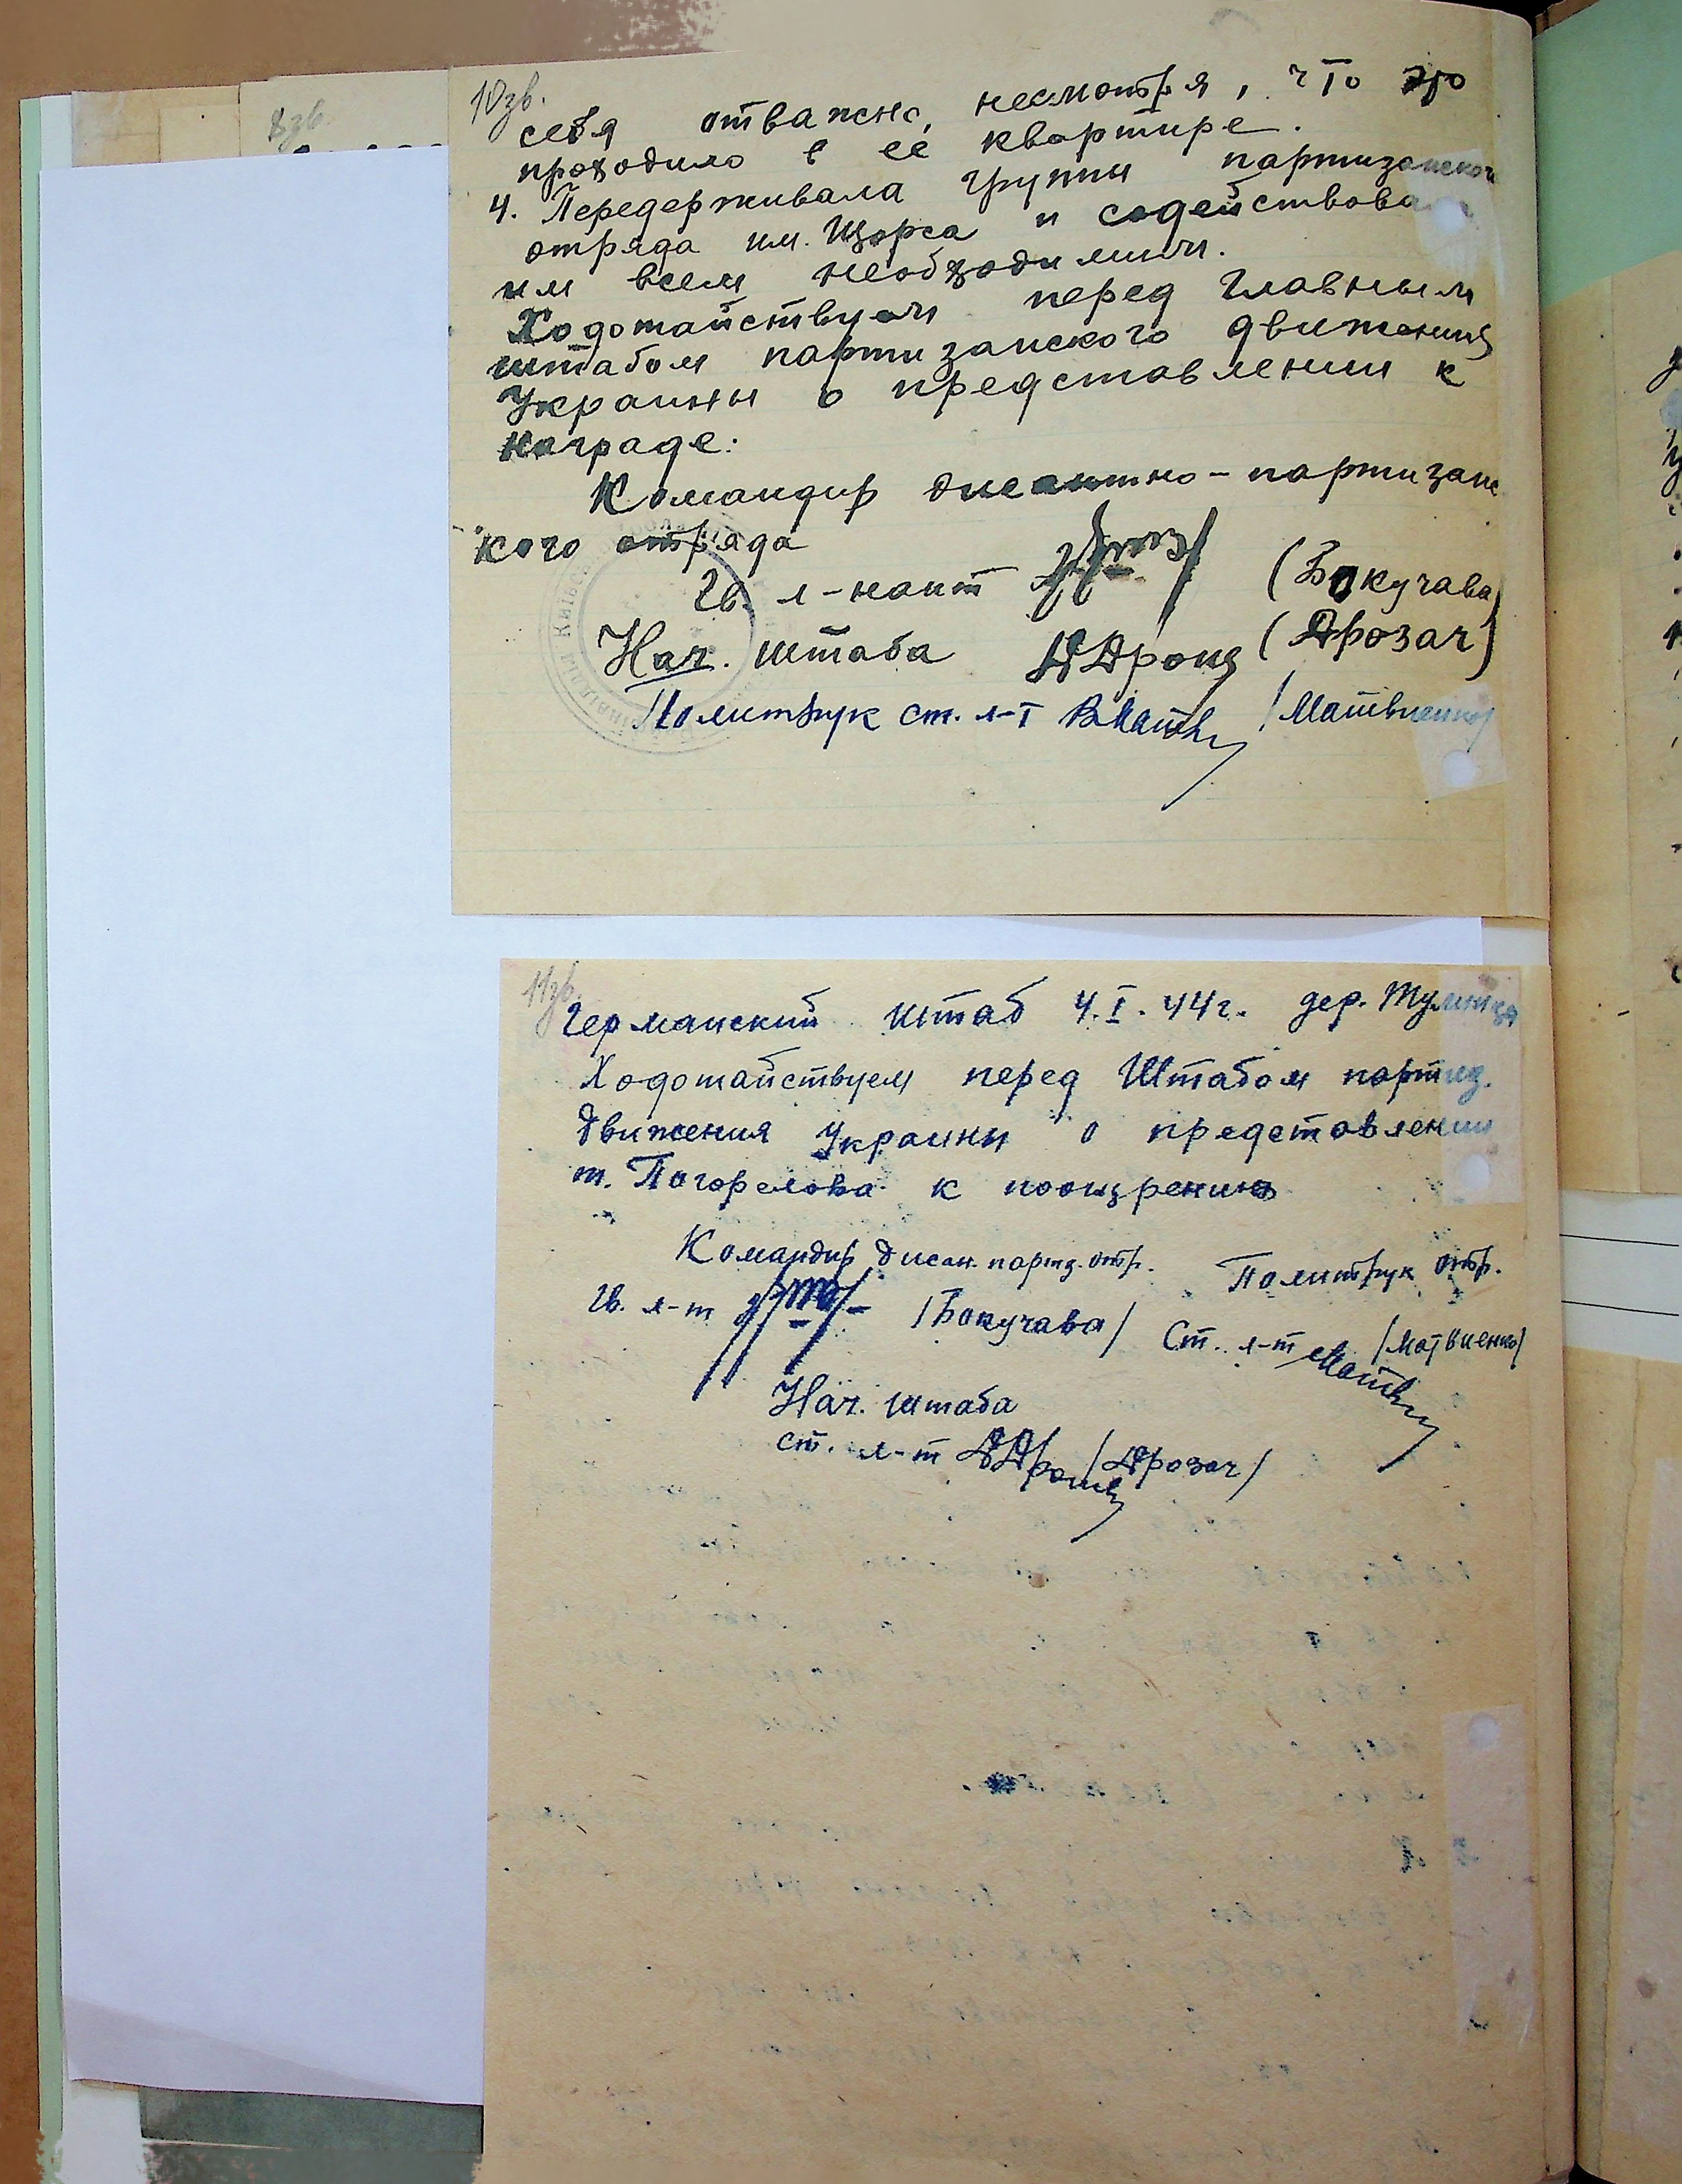 10зв.
себя отважно, несмотря, что это
проходило в её квартире.
4. Передерживала группы партизанской
отряда им. Щорса и содействовала
им всем необходимым.
Ходотайствуем перед Главным
штабом партизанского движения
Украины о представлении к
награде:
Командир десантно-партизанс
кого отряда
Гв. л-нант (Бокучава)
Нач. штаба ДДрозач (Дрозач)
Политрук ст. л-т ВМатв /Матвиенко/
8зв.
11зв.
Германский штаб 4.I.44г. дер.
Ходотайствуем перед Штабом партиз.
движения Украины о представлении
т. Погорелова к поощрению
Командир дисан. партз. отр. Политрук отр.
Гв. л-т /Бокучава/ Ст. л-т Матв /Матвиенко/
Нач. штаба
ст. л-т ДДрозач /Дрозач/